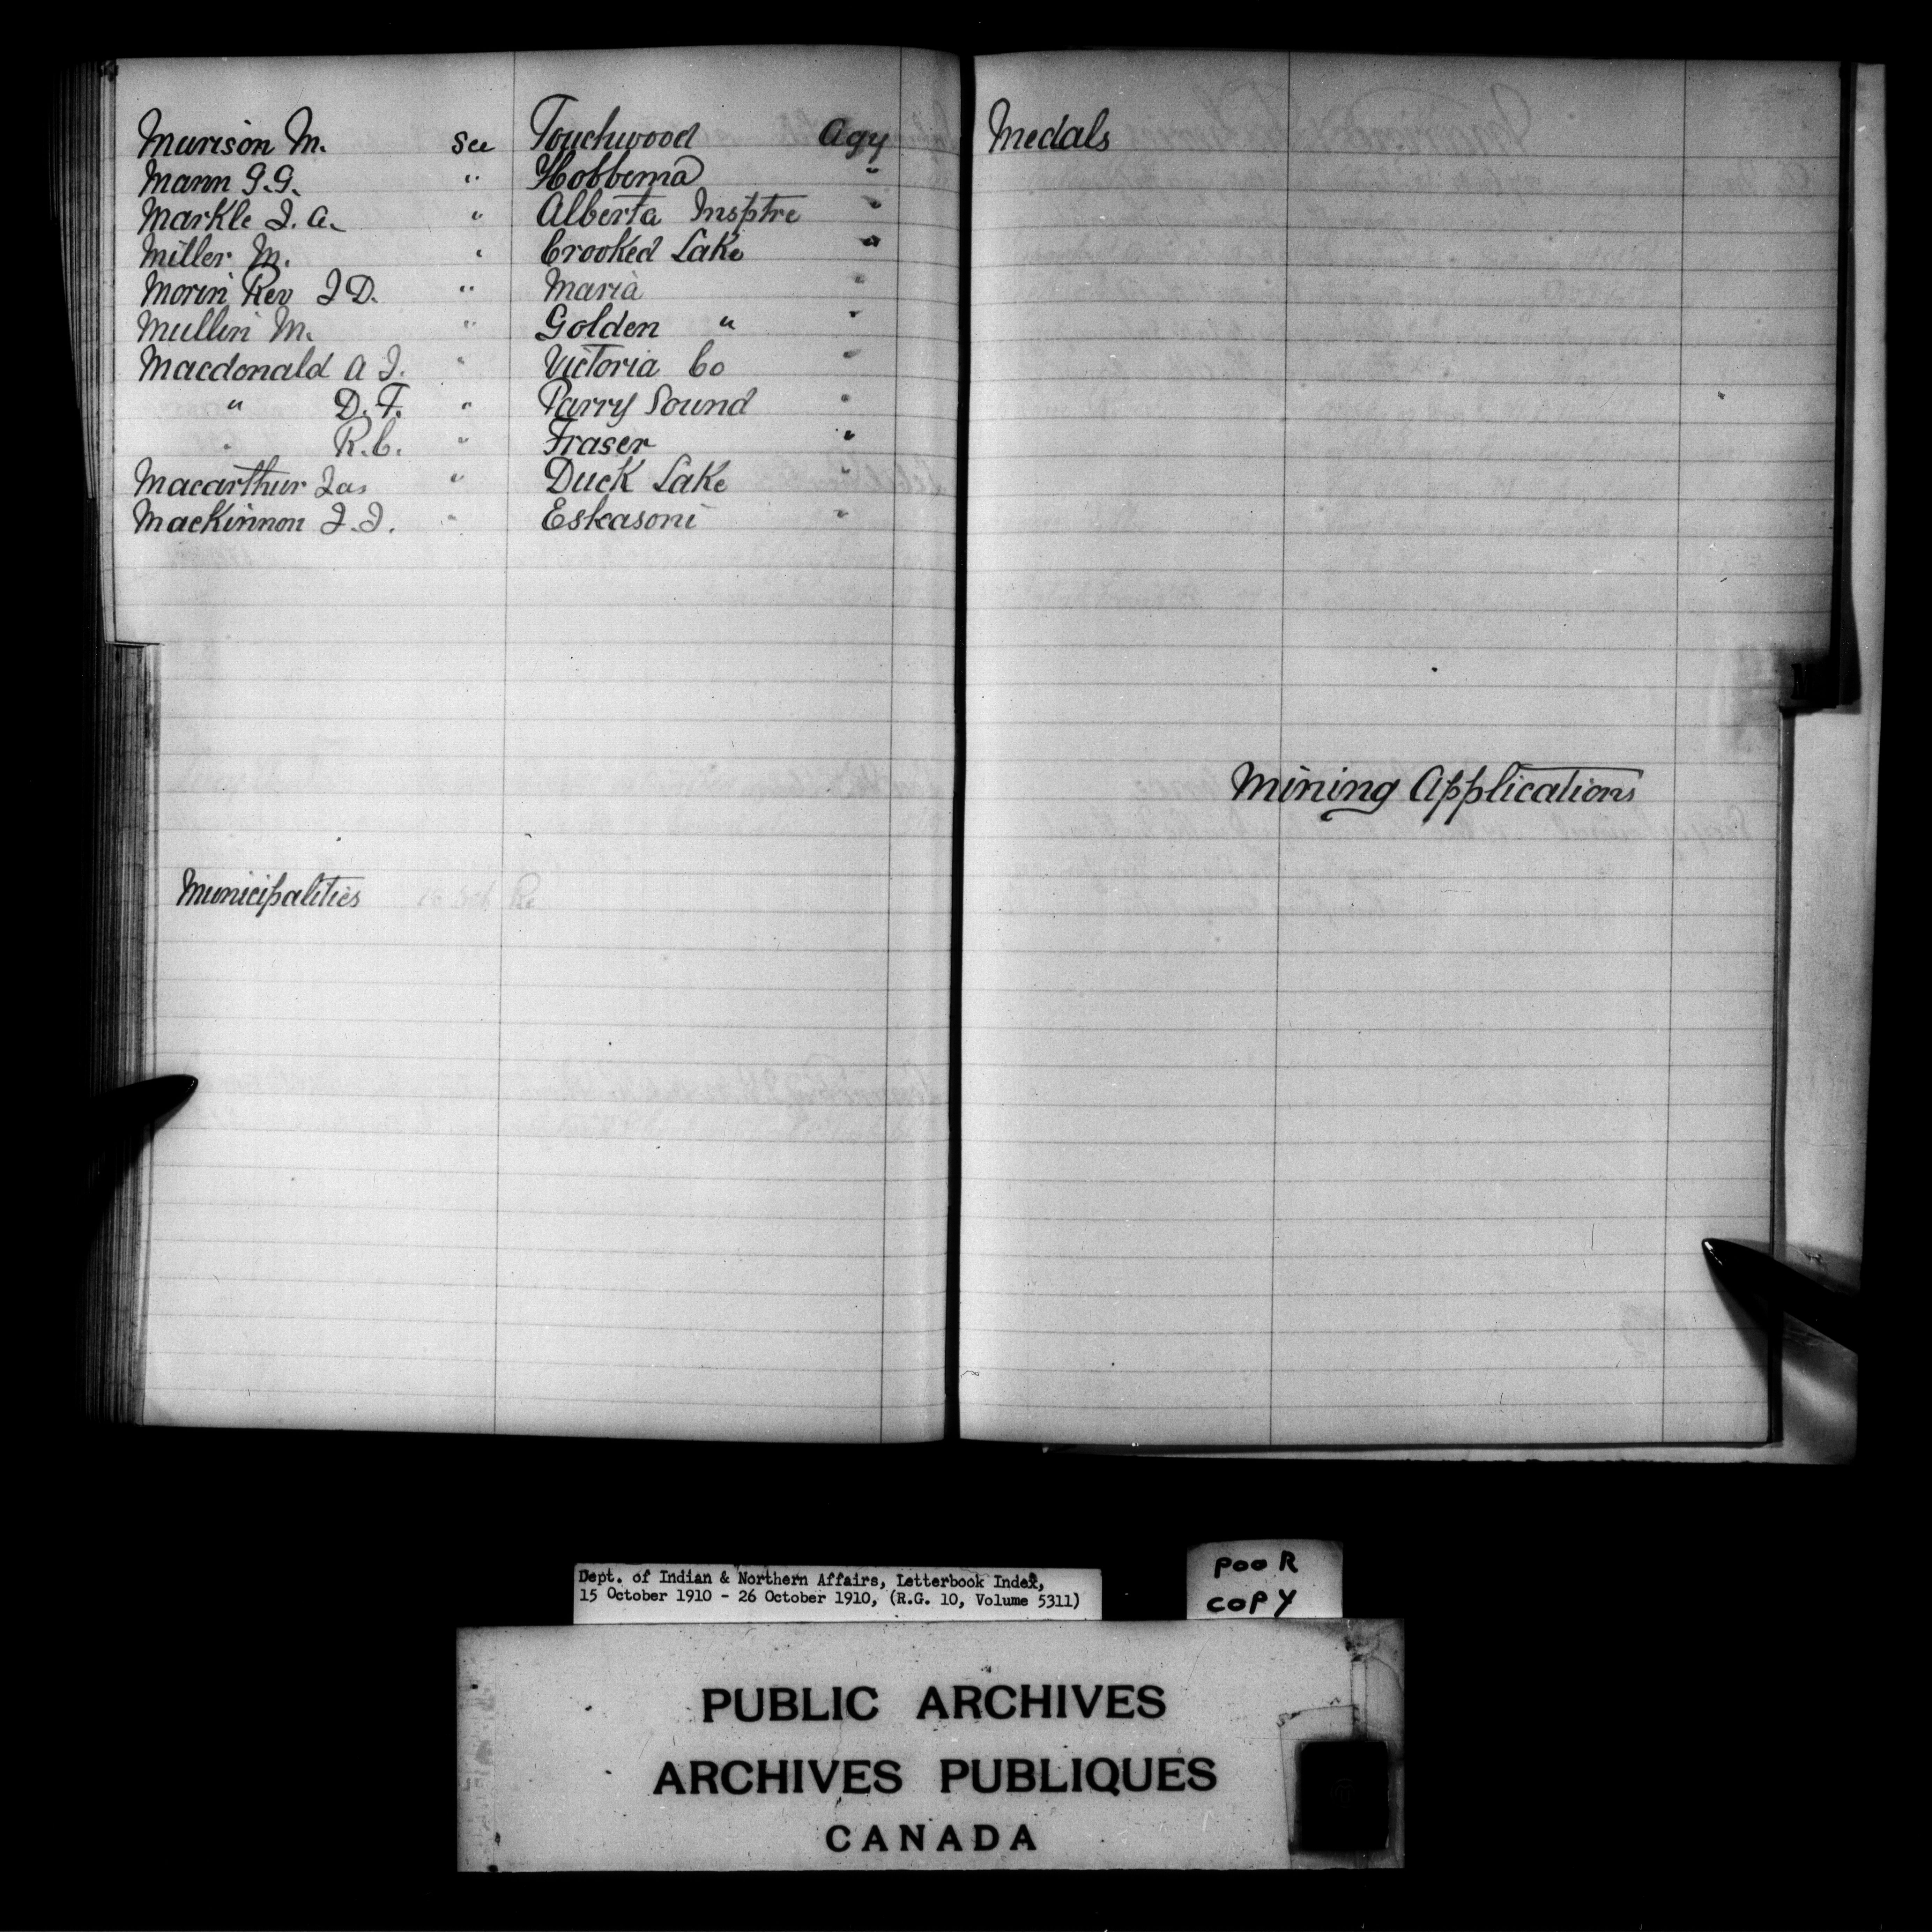 Murison M. See Touchwood Agy
Mann G.G. " Hobbema "
Markle J.A. " Alberta Insptre "
Miller M. " Crooked Lake "
Morin Rev J D. " Maria "
Mullin M. " Golden " "
Macdonald A J. " Victoria Co "
" D.F. " Parry Sound "
" R.C. " Fraser "
Macarthur Jas " Duck Lake "
MacKinnon J.J. " Eskasoni "
Municipalities
Medals
Mining Applications
Dept. of Indian & Northern Affairs, Letterbook Index,
15 October 1910 - 26 October 1910, (R.G. 10, Volume 5311)
POOR
COPY
PUBLIC ARCHIVES
ARCHIVES PUBLIQUES
CANADA